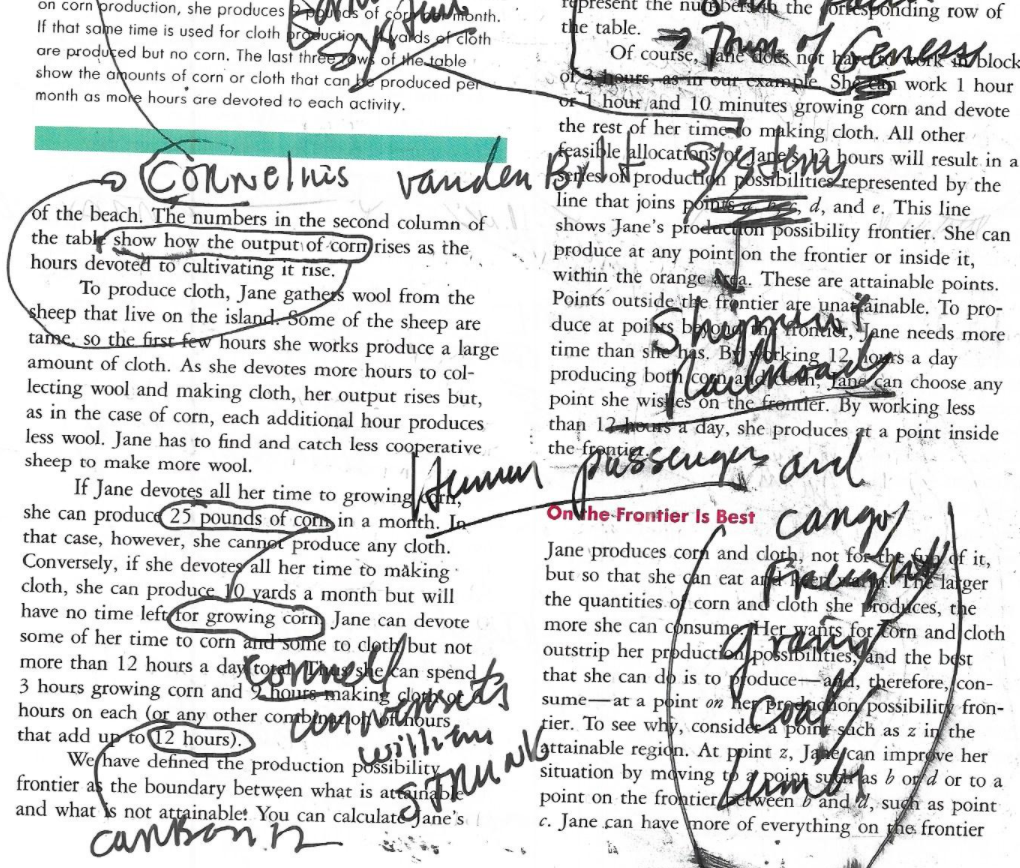 on corn production, she produces 2 pounds of corn per month.
If that same time is used for cloth production, yards of cloth
are produced but no corn. The last three rows of the table
show the amounts of corn or cloth that can be produced per
month as more hours are devoted to each activity.
CORNelius vandenBilt
of the beach. The numbers in the second column of
the table show how the output of corn rises as the
hours devoted to cultivating it rise.
To produce cloth, Jane gathers wool from the
sheep that live on the island. Some of the sheep are
tame, so the first few hours she works produce a large
amount of cloth. As she devotes more hours to col-
lecting wool and making cloth, her output rises but,
as in the case of corn, each additional hour produces
less wool. Jane has to find and catch less cooperative
sheep to make more wool.
If Jane devotes all her time to growing corn,
she can produce 25 pounds of corn in a month. In
that case, however, she cannot produce any cloth.
Conversely, if she devotes all her time to making
cloth, she can produce 10 yards a month but will
have no time left for growing corn. Jane can devote
some of her time to corn and some to cloth but not
more than 12 hours a day total. Thus she can spend
3 hours growing corn and 9 hours making cloth or
hours on each (or any other combination of hours
that add up to 12 hours).
We have defined the production possibility
frontier as the boundary between what is attainable
and what is not attainable. You can calculate Jane's
Cornell
william
STRUNK
carbon 12
represent the numbers in the corresponding row of
the table.
Town of Geness
Of course, Jane does not have to work in block
of 3 hours, as in our example. She can work 1 hour
or 1 hour and 10 minutes growing corn and devote
the rest of her time to making cloth. All other
feasible allocations of Jane's 12 hours will result in a
series of production possibilities represented by the
line that joins points a, b, c, d, and e. This line
shows Jane's production possibility frontier. She can
produce at any point on the frontier or inside it,
within the orange area. These are attainable points.
Points outside the frontier are unattainable. To pro-
duce at points beyond the frontier, Jane needs more
time than she has. By working 12 hours a day
producing both corn and cloth, Jane can choose any
point she wishes on the frontier. By working less
than 12 hours a day, she produces at a point inside
the frontier.
Systems
Shipping
Railroads
Human passengers and
cargo/
Freight
grain
Coal/
Lumb
On the Frontier Is Best
Jane produces corn and cloth, not for the fun of it,
but so that she can eat and keep warm. The larger
the quantities of corn and cloth she produces, the
more she can consume. Her wants for corn and cloth
outstrip her production possibilities, and the best
that she can do is to produce—and, therefore, con-
sume—at a point on her production possibility fron-
tier. To see why, consider a point such as z in the
attainable region. At point z, Jane can improve her
situation by moving to a point such as b or d or to a
point on the frontier between b and d, such as point
c. Jane can have more of everything on the frontier